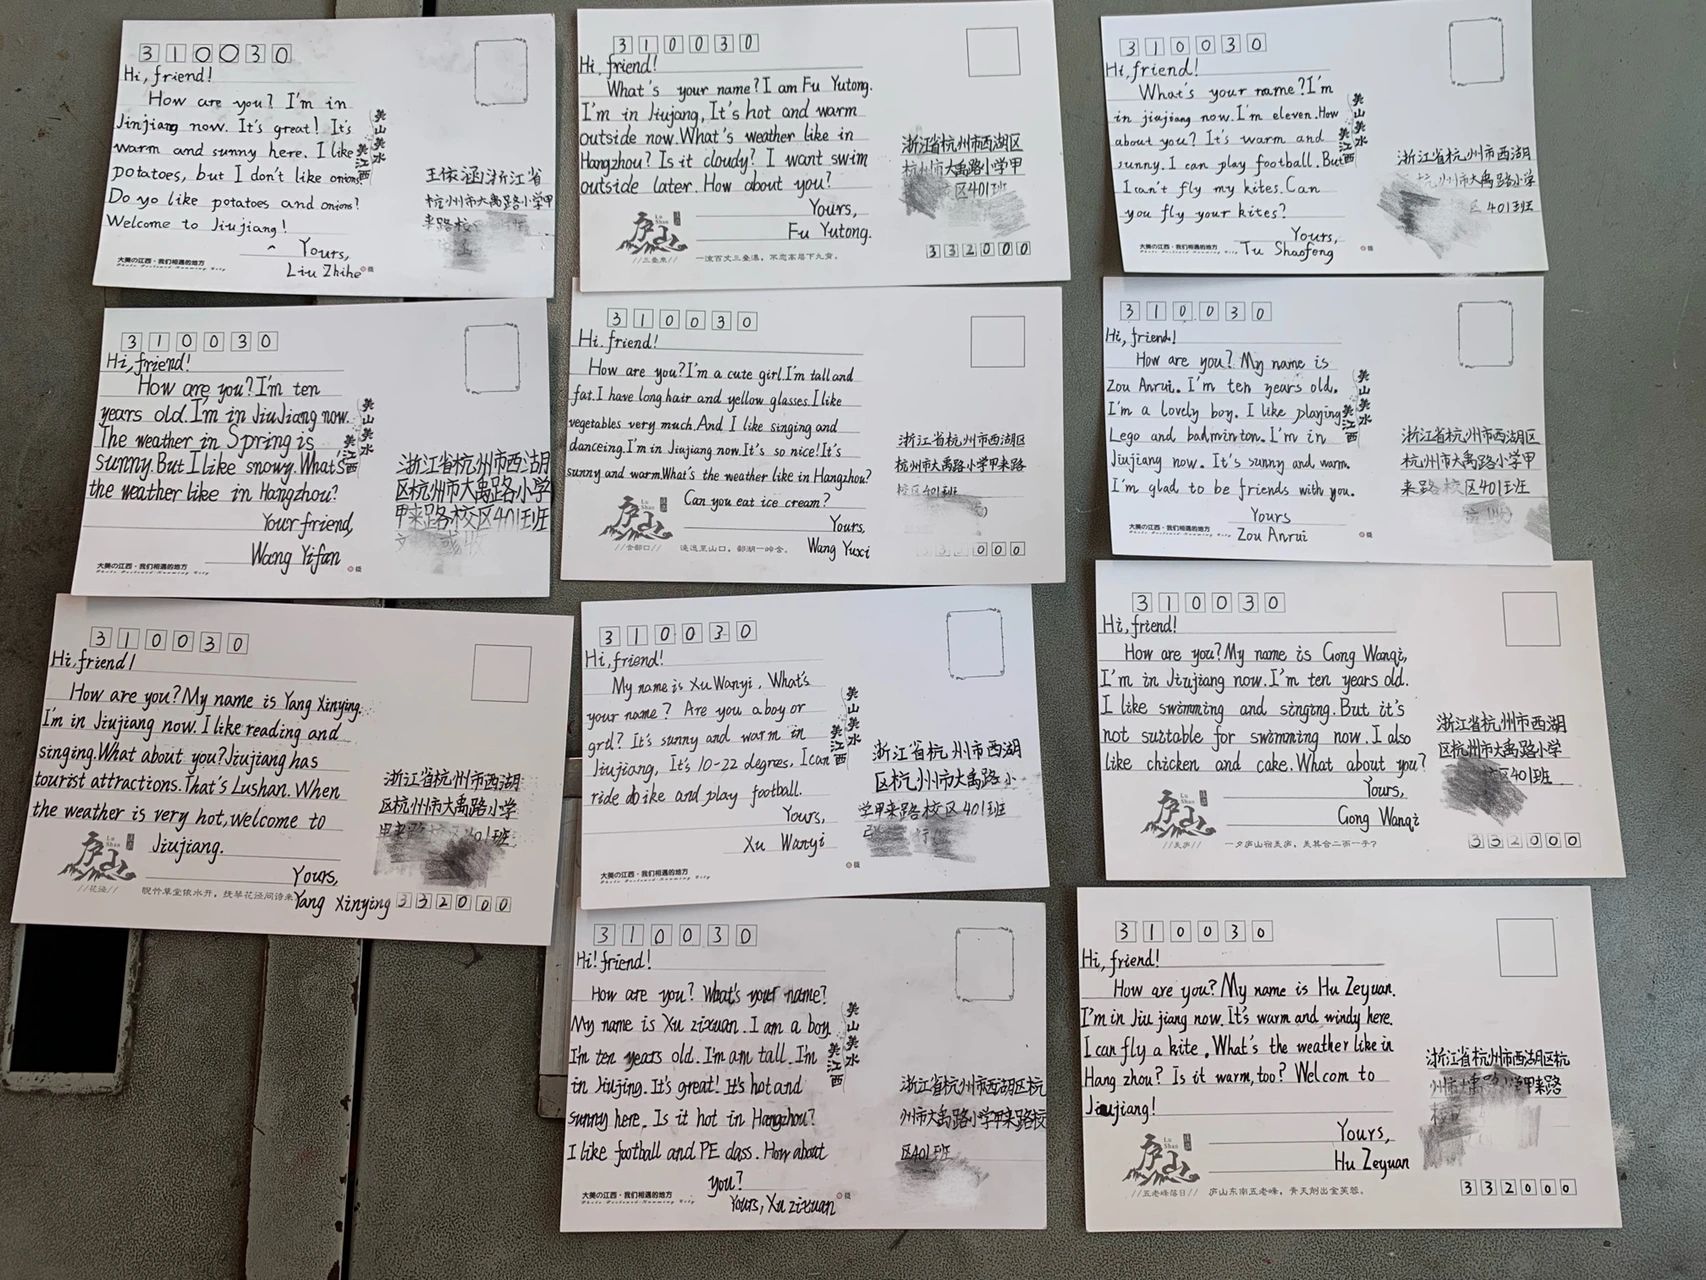 310030
Hi, friend!
How are you? I'm in
Jinjiang now. It's great! It's
warm and sunny here. I like
potatoes, but I don't like onions.
Do yo like potatoes and onions?
Welcome to Jiujiang!
Yours,
Liu Zhihe
美山美水
美江西
王依涵浙江省
杭州市大禹路小学甲
来路校
大美の江西·我们相遇的地方
310030
Hi, friend!
What's your name? I am Fu Yutong.
I'm in Jiujang, It's hot and warm
outside now. What's weather like in
Hangzhou? Is it cloudy? I want swim
outside later. How about you?
Yours,
Fu Yutong.
浙江省杭州市西湖区
杭州市大禹路小学甲
区401班
332000
Lu Shan
庐山
//三叠泉//
一流百丈三叠瀑,不恋高居下九霄。
310030
Hi, friend!
What's your name? I'm
in jiujiang now. I'm eleven. How
about you? It's warm and
sunny. I can play football. But
I can't fly my kites. Can
you fly your kites?
Yours,
Tu Shaofeng
美山美水
美江西
浙江省杭州市西湖
杭州市大禹路小学
区401班
大美の江西·我们相遇的地方
310030
Hi, friend!
How are you? I'm ten
years old. I'm in JiuJiang now.
The weather in Spring is
sunny. But I like snowy. What's
the weather like in Hangzhou?
Your friend,
Wang Yifan
美山美水
美江西
浙江省杭州市西湖
区杭州市大禹路小学
甲来路校区401班
大美の江西·我们相遇的地方
310030
Hi, friend!
How are you? I'm a cute girl. I'm tall and
fat. I have long hair and yellow glasses. I like
vegetables very much. And I like singing and
danceing. I'm in Jiujiang now. It's so nice! It's
sunny and warm. What's the weather like in Hangzhou?
Can you eat ice cream?
Yours,
Wang Yuxi
浙江省杭州市西湖区
杭州市大禹路小学甲来路
校区401班
332000
Lu Shan
庐山
//含鄱口//
310030
Hi, friend!
How are you? My name is
Zou Anrui. I'm ten years old.
I'm a lovely boy. I like playing
Lego and badminton. I'm in
Jiujiang now. It's sunny and warm.
I'm glad to be friends with you.
Yours
Zou Anrui
美山美水
美江西
浙江省杭州市西湖区
杭州市大禹路小学甲
来路校区401班
大美の江西·我们相遇的地方
310030
Hi, friend!
How are you? My name is Yang Xinying.
I'm in Jiujiang now. I like reading and
singing. What about you? Jiujiang has
tourist attractions. That's Lushan. When
the weather is very hot, welcome to
Jiujiang.
Yours,
Yang Xinying
浙江省杭州市西湖
区杭州市大禹路小学
甲来路校区401班
332000
Lu Shan
庐山
//花径//
310030
Hi, friend!
My name is Xu Wanyi. What's
your name? Are you a boy or
grl? It's sunny and warm in
Jiujiang, It's 10-22 degrees. I can
ride abike and play football.
Yours,
Xu Wanyi
美山美水
美江西
浙江省杭州市西湖
区杭州市大禹路小
学甲来路校区401班
大美の江西·我们相遇的地方
310030
Hi, friend!
How are you? My name is Gong Wanqi,
I'm in Jiujiang now. I'm ten years old.
I like swimming and singing. But it's
not suitable for swimming now. I also
like chicken and cake. What about you?
Yours,
Gong Wanqi
浙江省杭州市西湖
区杭州市大禹路小学
校区401班
332000
Lu Shan
庐山
310030
Hi! friend!
How are you? What's your name?
My name is Xu zixuan. I am a boy
I'm ten years old. I'm am tall. I'm
in Jiujing. It's great! It's hot and
sunny here. Is it hot in Hangzhou?
I like football and PE class. How about
you?
Yours, Xu zixuan
美山美水
美江西
浙江省杭州市西湖区杭
州市大禹路小学甲来路校
区401班
大美の江西·我们相遇的地方
310030
Hi, friend!
How are you? My name is Hu Zeyuan.
I'm in Jiu jiang now. It's warm and windy here.
I can fly a kite. What's the weather like in
Hang zhou? Is it warm, too? Welcom to
Jiujiang!
Yours,
Hu Zeyuan
浙江省杭州市西湖区杭
州市大禹路小学甲来路
332000
Lu Shan
庐山
//五老峰落日//
庐山东南五老峰,青天削出金芙蓉。